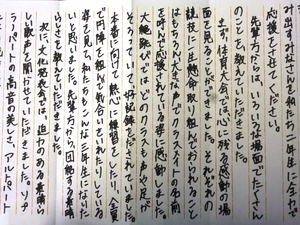 み出すみなさんを私たち二年生に全力で
応援させてください。
先輩方からは、いろいろな場面でたくさん
のことを教えていただきました。
まず、体育大会では心に残る感動の場
面を見ることができました。それぞれの
競技に一生懸命取り組んでおられること
はもちろん大きな声でクラスメイトの名前
を呼んで応援されている姿に感動しました。
大縄跳びではどのクラスも声や足が
そろっていて好記録をだしていました。
本番に向けて熱心に練習をしたり、全員
で円陣を組んで気合いを入れたりしている
姿を見て私たちもこんな三年生になりた
いと思いました。先輩方から、団結する素晴
らしさを教えていただきました。
次に、文化発表会では、迫力のある素晴ら
しい歌声を聞かせていただきました。ソプ
ラノパートの高音の美しさ、アルトパート